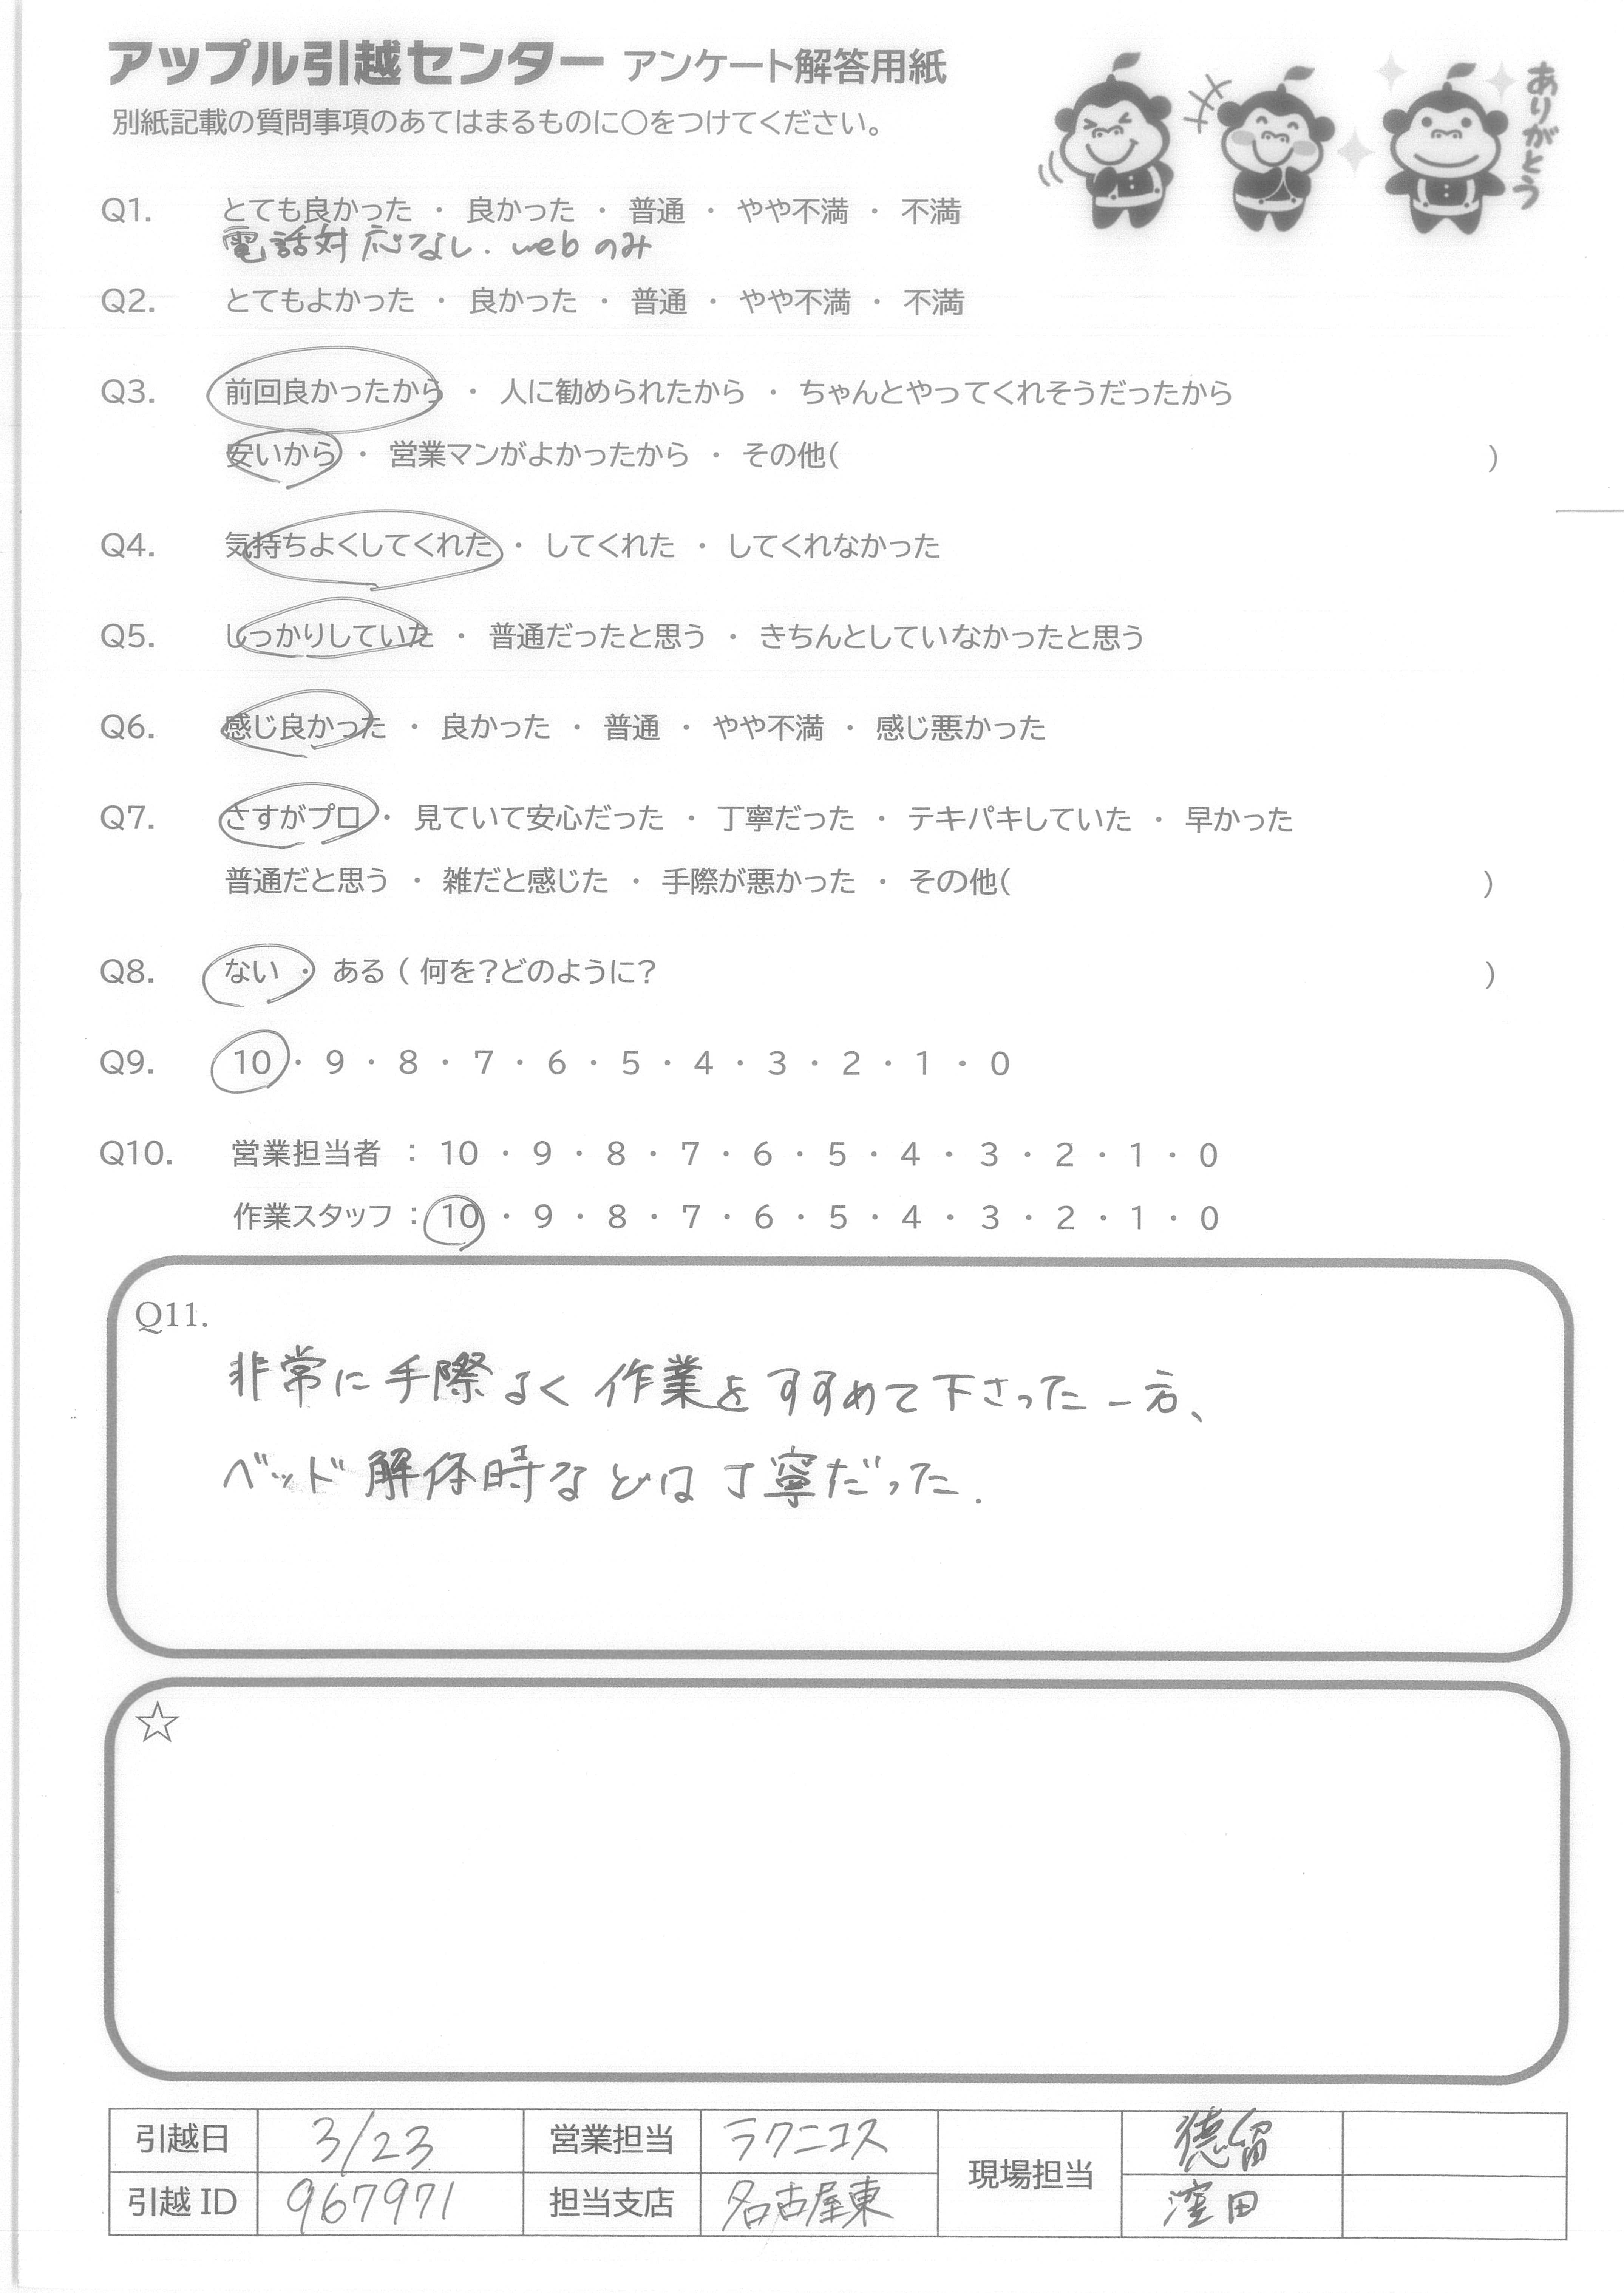 アップル引越センター アンケート解答用紙
別紙記載の質問事項のあてはまるものに○をつけてください。
ありがとう
Q1. とても良かった ・ 良かった ・ 普通 ・ やや不満 ・ 不満
電話対応なし. webのみ
Q2. とてもよかった ・ 良かった ・ 普通 ・ やや不満 ・ 不満
Q3. 前回良かったから ・ 人に勧められたから ・ ちゃんとやってくれそうだったから
安いから ・ 営業マンがよかったから ・ その他( )
Q4. 気持ちよくしてくれた ・ してくれた ・ してくれなかった
Q5. しっかりしていた ・ 普通だったと思う ・ きちんとしていなかったと思う
Q6. 感じ良かった ・ 良かった ・ 普通 ・ やや不満 ・ 感じ悪かった
Q7. さすがプロ ・ 見ていて安心だった ・ 丁寧だった ・ テキパキしていた ・ 早かった
普通だと思う ・ 雑だと感じた ・ 手際が悪かった ・ その他( )
Q8. ない ・ ある ( 何を?どのように? )
Q9. 10 ・ 9 ・ 8 ・ 7 ・ 6 ・ 5 ・ 4 ・ 3 ・ 2 ・ 1 ・ 0
Q10. 営業担当者 : 10 ・ 9 ・ 8 ・ 7 ・ 6 ・ 5 ・ 4 ・ 3 ・ 2 ・ 1 ・ 0
作業スタッフ : 10 ・ 9 ・ 8 ・ 7 ・ 6 ・ 5 ・ 4 ・ 3 ・ 2 ・ 1 ・ 0
Q11.
非常に手際よく作業をすすめて下さった一方、
ベッド解体時などは丁寧だった.
☆
引越日 3/23 営業担当 ラクニコス 現場担当 徳留
引越ID 967971 担当支店 名古屋東 窪田